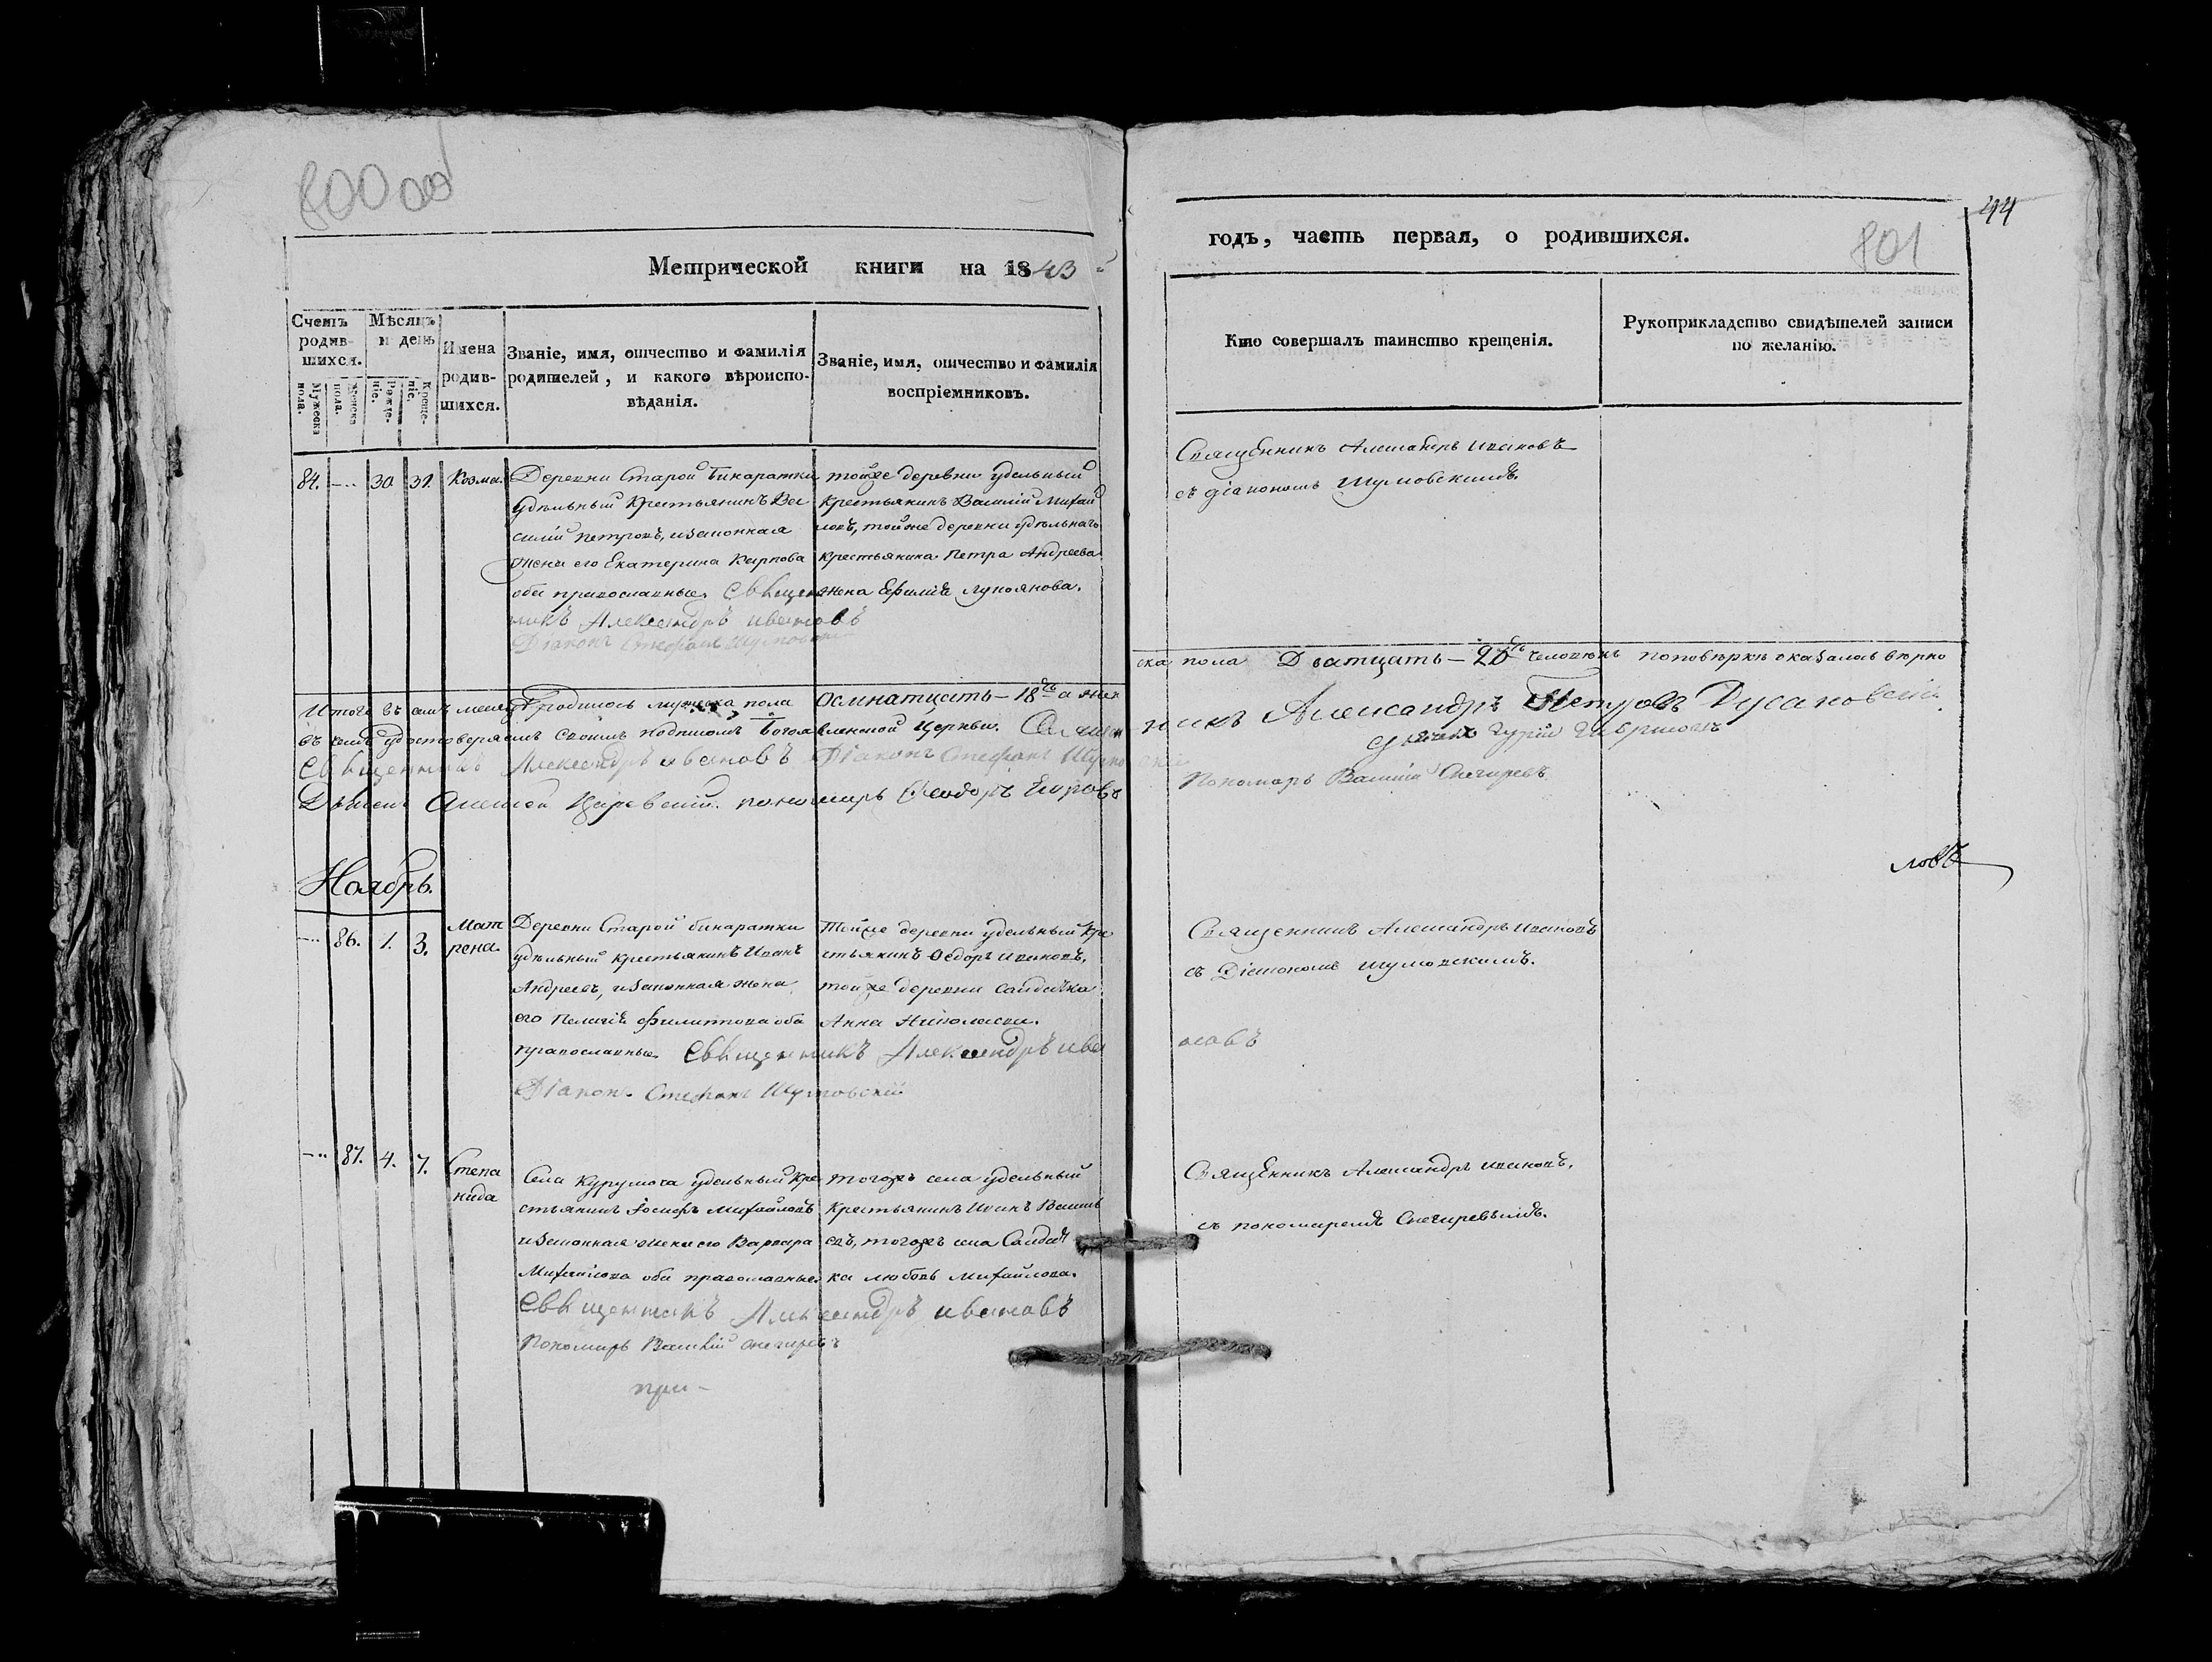 800
44
801
Метрической книги на 1843
годъ, часть первая, о родившихся.
Счетъ родив-шихся.
Мѣсяцъ и день
Мужеска пола.
Женска пола.
Рожде-ніе.
Креще-ніе.
Имена родив-шихся.
Званіе, имя, отчество и фамилія
родителей, и какого вѣроиспо-
вѣданія.
Званіе, имя, отчество и фамилія
воспріемниковъ.
Кто совершалъ таинство крещенія.
Рукоприкладство свидѣтелей записи
по желанію.
84. 30 31. Козма.
Деревни Старой Бинаратки
удѣльный крестьянинъ Ва
силій Петровъ, изаконная
жена его Екатерина Карпова
оба православные. Священ
никъ Александръ Ивановъ
Діаконъ Стефанъ Шумовскій
тойже деревни удельный
крестьянинъ Василій Михай
ловъ, тойже деревни удѣльнаго
крестьянина Петра Андреева
жена Евфимія Лукоянова.
Священникъ Александръ Ивановъ
съ діакономъ Шумовскимъ.
Итого въ семъ месяцѣ родилось мужеска пола Осмнатцать – 18ть а жен
ска пола Дватцать – 20ть человѣкъ поповѣркѣ оказалось вѣрно
въ чемъ удостоверяемъ своимъ подписомъ Богоявленской Церкви. Священ
никъ Александръ Петровъ
Священникъ Александръ Ивановъ Діаконъ Стефанъ Шумовскій
Дьячекъ Гурій
Дьячекъ Алексей Царевскій. пономарь Феодоръ Егоровъ
Пономарь Василій Снегиревъ
Ноябрь.
ловъ
86. 1. 3. Мат
рена.
Деревни Старой бинаратки
удѣльный крестьянинъ Иванъ
Андреевъ, изаконная жена
его Пелагія Филиппова оба
православные. Священникъ Александръ Ива
новъ
Діаконъ Стефанъ Шумовскій
Тойже деревни удельный кре
стьянинъ Ѳедоръ Ивановъ,
тойже деревни салдатка
Анна Николаева.
Священникъ Александръ Ивановъ
съ Діакономъ Шумовскимъ.
87. 4. 7. Степа
нида
Села Курумоча удельный кре
стьянинъ Іосифъ Михайловъ
изаконная жена его Варвара
Михайлова оба православные.
Священникъ Александръ Ивановъ
Пономарь Василій Снегиревъ
при-
тогожъ села удельный
крестьянинъ Иванъ Василь
евъ, тогожъ села Салдат
ка Любовь Михайлова.
Священникъ Александръ Ивановъ,
съ пономаремъ Снегиревымъ.